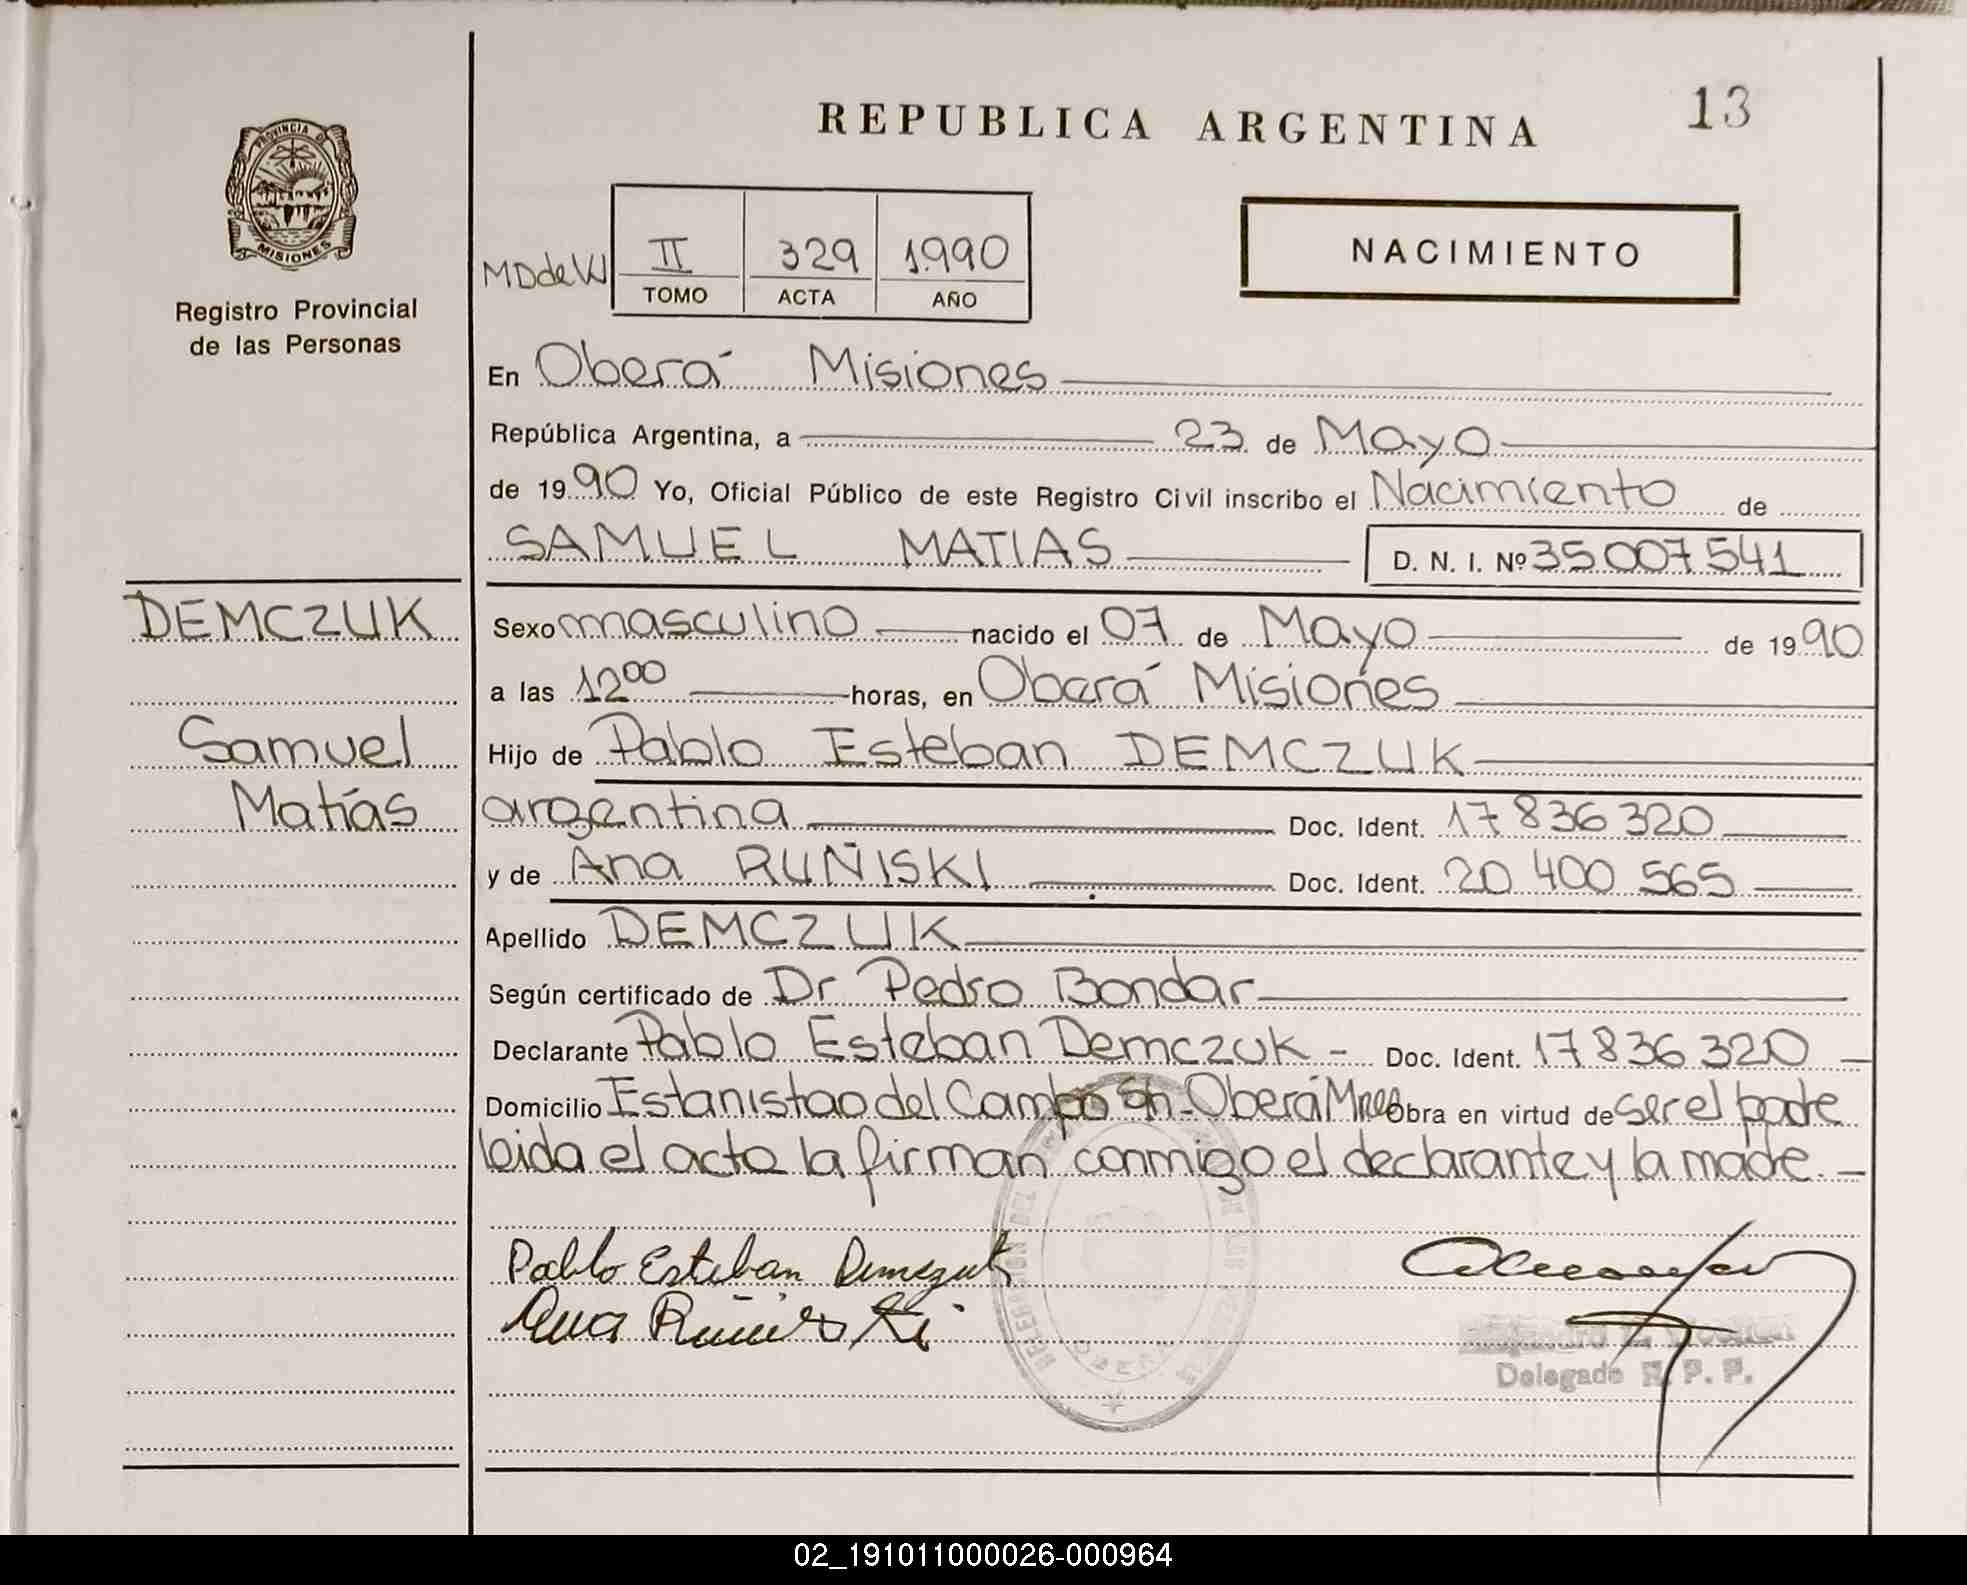 REPUBLICA ARGENTINA
13
PROVINCIA DE
MISIONES
Registro Provincial
de las Personas
MDdeW
II 329 1.990
TOMO ACTA AÑO
NACIMIENTO
En Oberá Misiones
República Argentina, a 23 de Mayo
de 1990 Yo, Oficial Público de este Registro Civil inscribo el Nacimiento de
SAMUEL MATIAS D. N. I. Nº 35 007 541
DEMCZUK
Samuel
Matías
Sexo masculino nacido el 07 de Mayo de 1990
a las 12 00 horas, en Oberá Misiones
Hijo de Pablo Esteban DEMCZUK
argentina Doc. Ident. 17 836 320
y de Ana RUÑISKI Doc. Ident. 20 400 565
Apellido DEMCZUK
Según certificado de Dr Pedro Bondar
Declarante Pablo Esteban Demczuk - Doc. Ident. 17 836 320 -
Domicilio Estanistao del Campo Sn - Oberá Mnes Obra en virtud de ser el padre
leida el acta la firman conmigo el declarante y la madre. -
Pablo Esteban Demczuk
Ana Ruñiski
Delegado R. P. P.
02_191011000026-000964